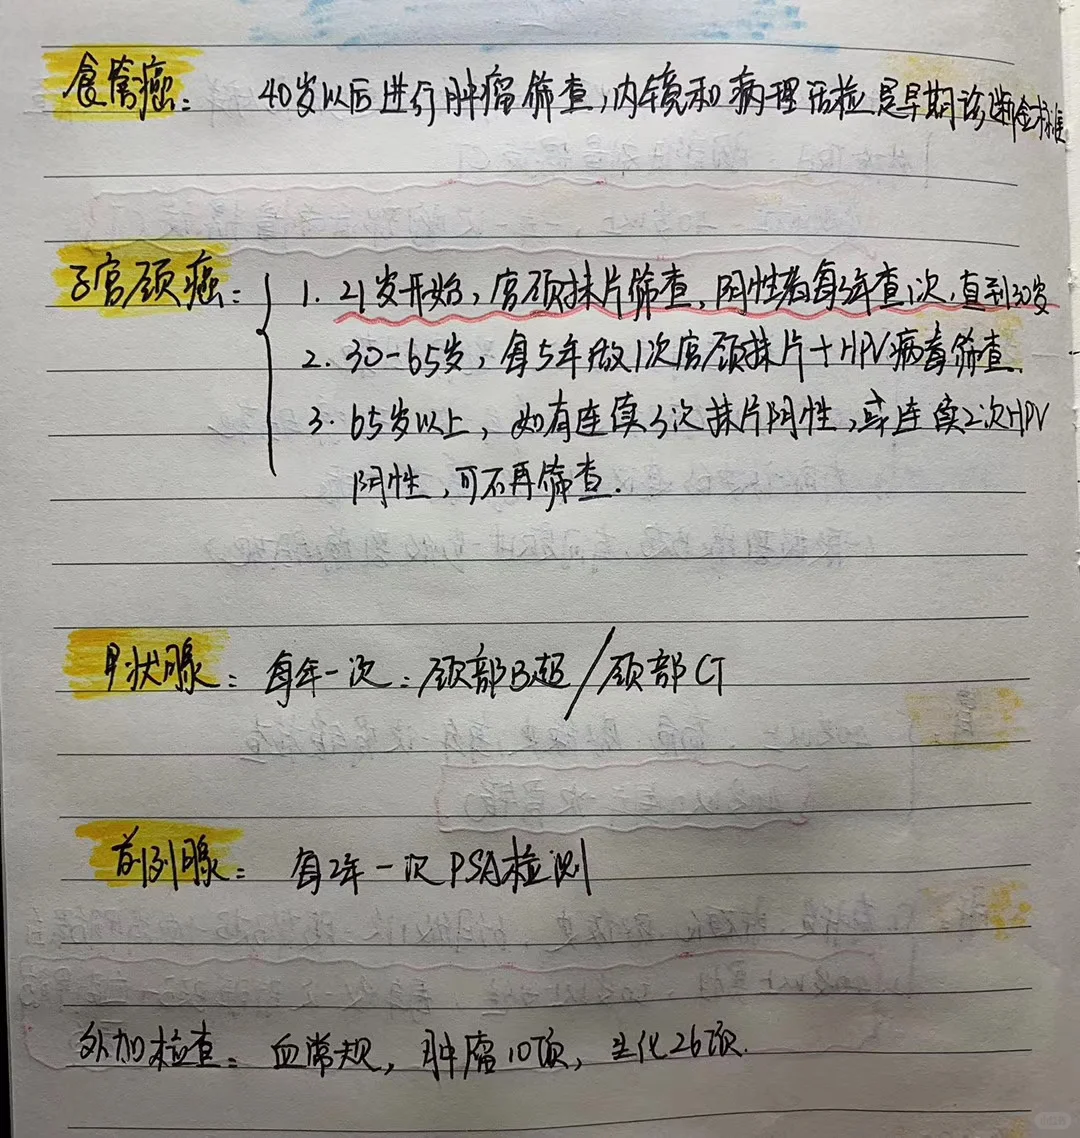 食管癌: 40岁以后进行肿瘤筛查,内镜和病理活检是早期诊断金标准
子宫颈癌: 1. 21岁开始,宫颈抹片筛查,阴性者每3年查1次,直到30岁
2. 30-65岁,每5年做1次宫颈抹片+HPV病毒筛查.
3. 65岁以上,如有连续3次抹片阴性,或连续2次HPV
阴性,可不再筛查.
甲状腺: 每年一次: 颈部B超/颈部CT
前列腺: 每2年一次PSA检测
外加检查: 血常规,肿瘤10项,生化26项.